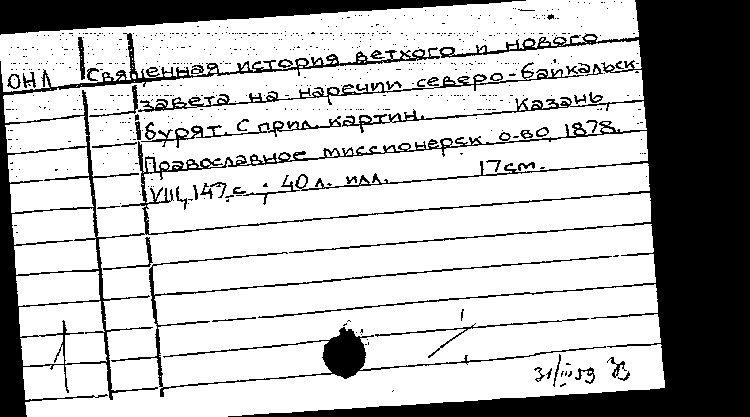 ОНЛ Священная история ветхого и нового
завета на наречии северо-байкальск.
бурят. С прил. картин. Казань,
Православное миссионерск. о-во, 1878.
VIII, 147 с.; 40 л. илл. 17 см.
1
31/III 59